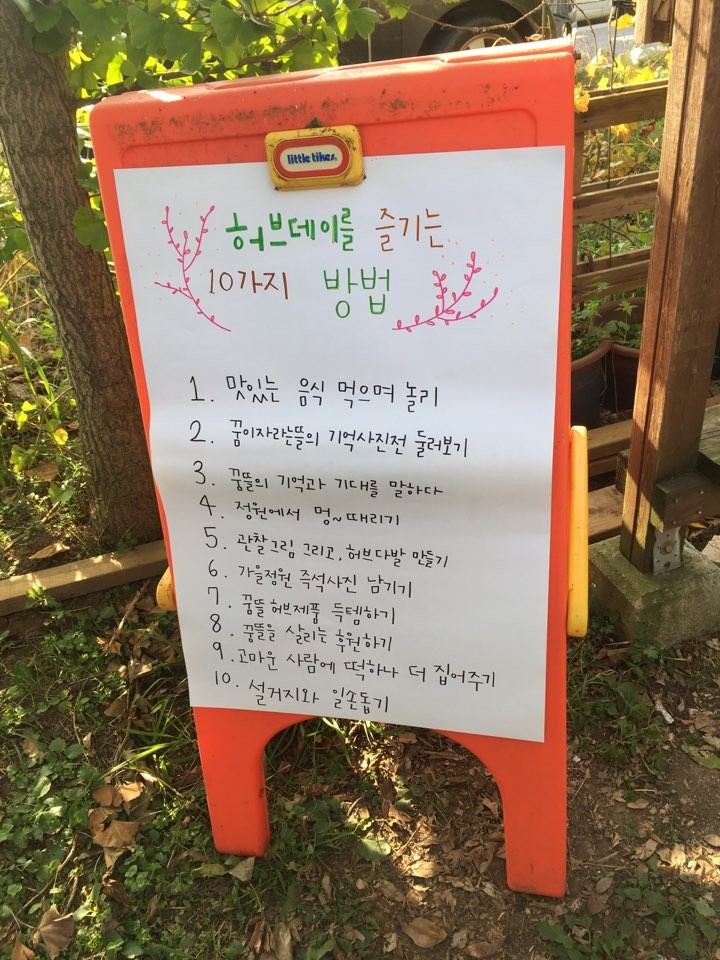 little tikes
허브데이를 즐기는
10가지 방법
1. 맛있는 음식 먹으며 놀기
2. 꿈이자라는뜰의 기억사진전 둘러보기
3. 꿈뜰의 기억과 기대를 말하다
4. 정원에서 멍~때리기
5. 관찰그림 그리고, 허브다발 만들기
6. 가을정원 즉석사진 남기기
7. 꿈뜰 허브제품 득템하기
8. 꿈뜰을 살리는 후원하기
9. 고마운 사람에 떡하나 더 집어주기
10. 설거지와 일손돕기